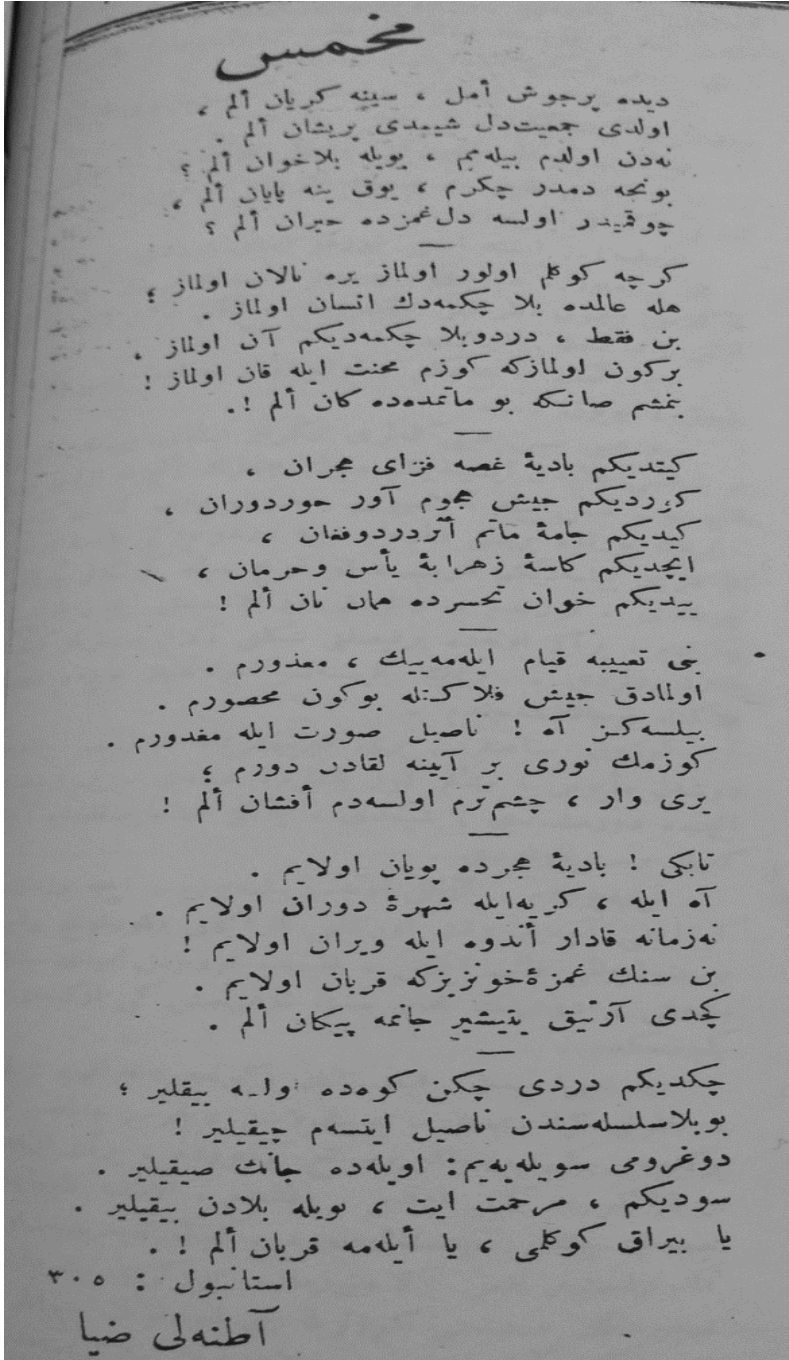 مخمس
دیده پرجوش أمل ، سینه کریان ألم ،
اولدی جمعیت‌دل شیمدی پریشان ألم .
نه‌دن اولدم بیله‌مم ، بویله بلاخوان ألم ؟
بونجه دمدر چکرم ، یوق ینه پایان ألم ،
چوقمیدر اولسه دل‌غمزده حیران ألم ؟
کرچه کوکلم اولور اولماز یره نالان اولماز ؛
هله عالمده بلا چکمه‌دك انسان اولماز .
بن فقط ، دردوبلا چکمه‌دیکم آن اولماز .
برکون اولمازکه کوزم محنت ایله قان اولماز !
بتمشم صانکه بو ماتمده‌ده کان ألم !.
کیتدیکم بادیهٔ غصه فزای هجران ،
کوردیکم جیش هجوم آور جوردوران ،
کیدیکم جامهٔ ماتم أثردردوفغان ،
ایچدیکم کاسهٔ زهرابهٔ یأس وحرمان ،
ییدیکم خوان تحسرده همان نان ألم !
بنی تعییبه قیام ایله‌مه‌ییك ، معذورم .
اولمادق جیش فلاکتله بوکون محصورم .
بیلسه‌کز آه ! ناصیل صورت ایله مغدورم .
کوزمك نوری بر آیینه لقادن دورم ؛
یری وار ، چشم‌ترم اولسه‌دم أفشان ألم !
تابکی ! بادیهٔ هجرده پویان اولایم .
آه ایله ، کریه‌ایله شهرهٔ دوران اولایم .
نه‌زمانه قادار أندوه ایله ویران اولایم !
بن سنك غمزهٔ‌خونریزکه قربان اولایم .
کچدی آرتیق یتیشیر جانمه پیکان ألم .
چکدیکم دردی چکن کوه‌ده اولسه ییقلیر ؛
بوبلاسلسله‌سندن ناصیل ایتسه‌م چیقیلیر !
دوغرومی سویله‌یه‌یم: اویله‌ده جانك صیقیلیر .
سودیکم ، مرحمت ایت ، بویله بلادن بیقیلیر .
یا بیراق کوکلمی ، یا أیله‌مه قربان ألم ! .
استانبول : ٣٠٥
آطنه‌لی ضیا